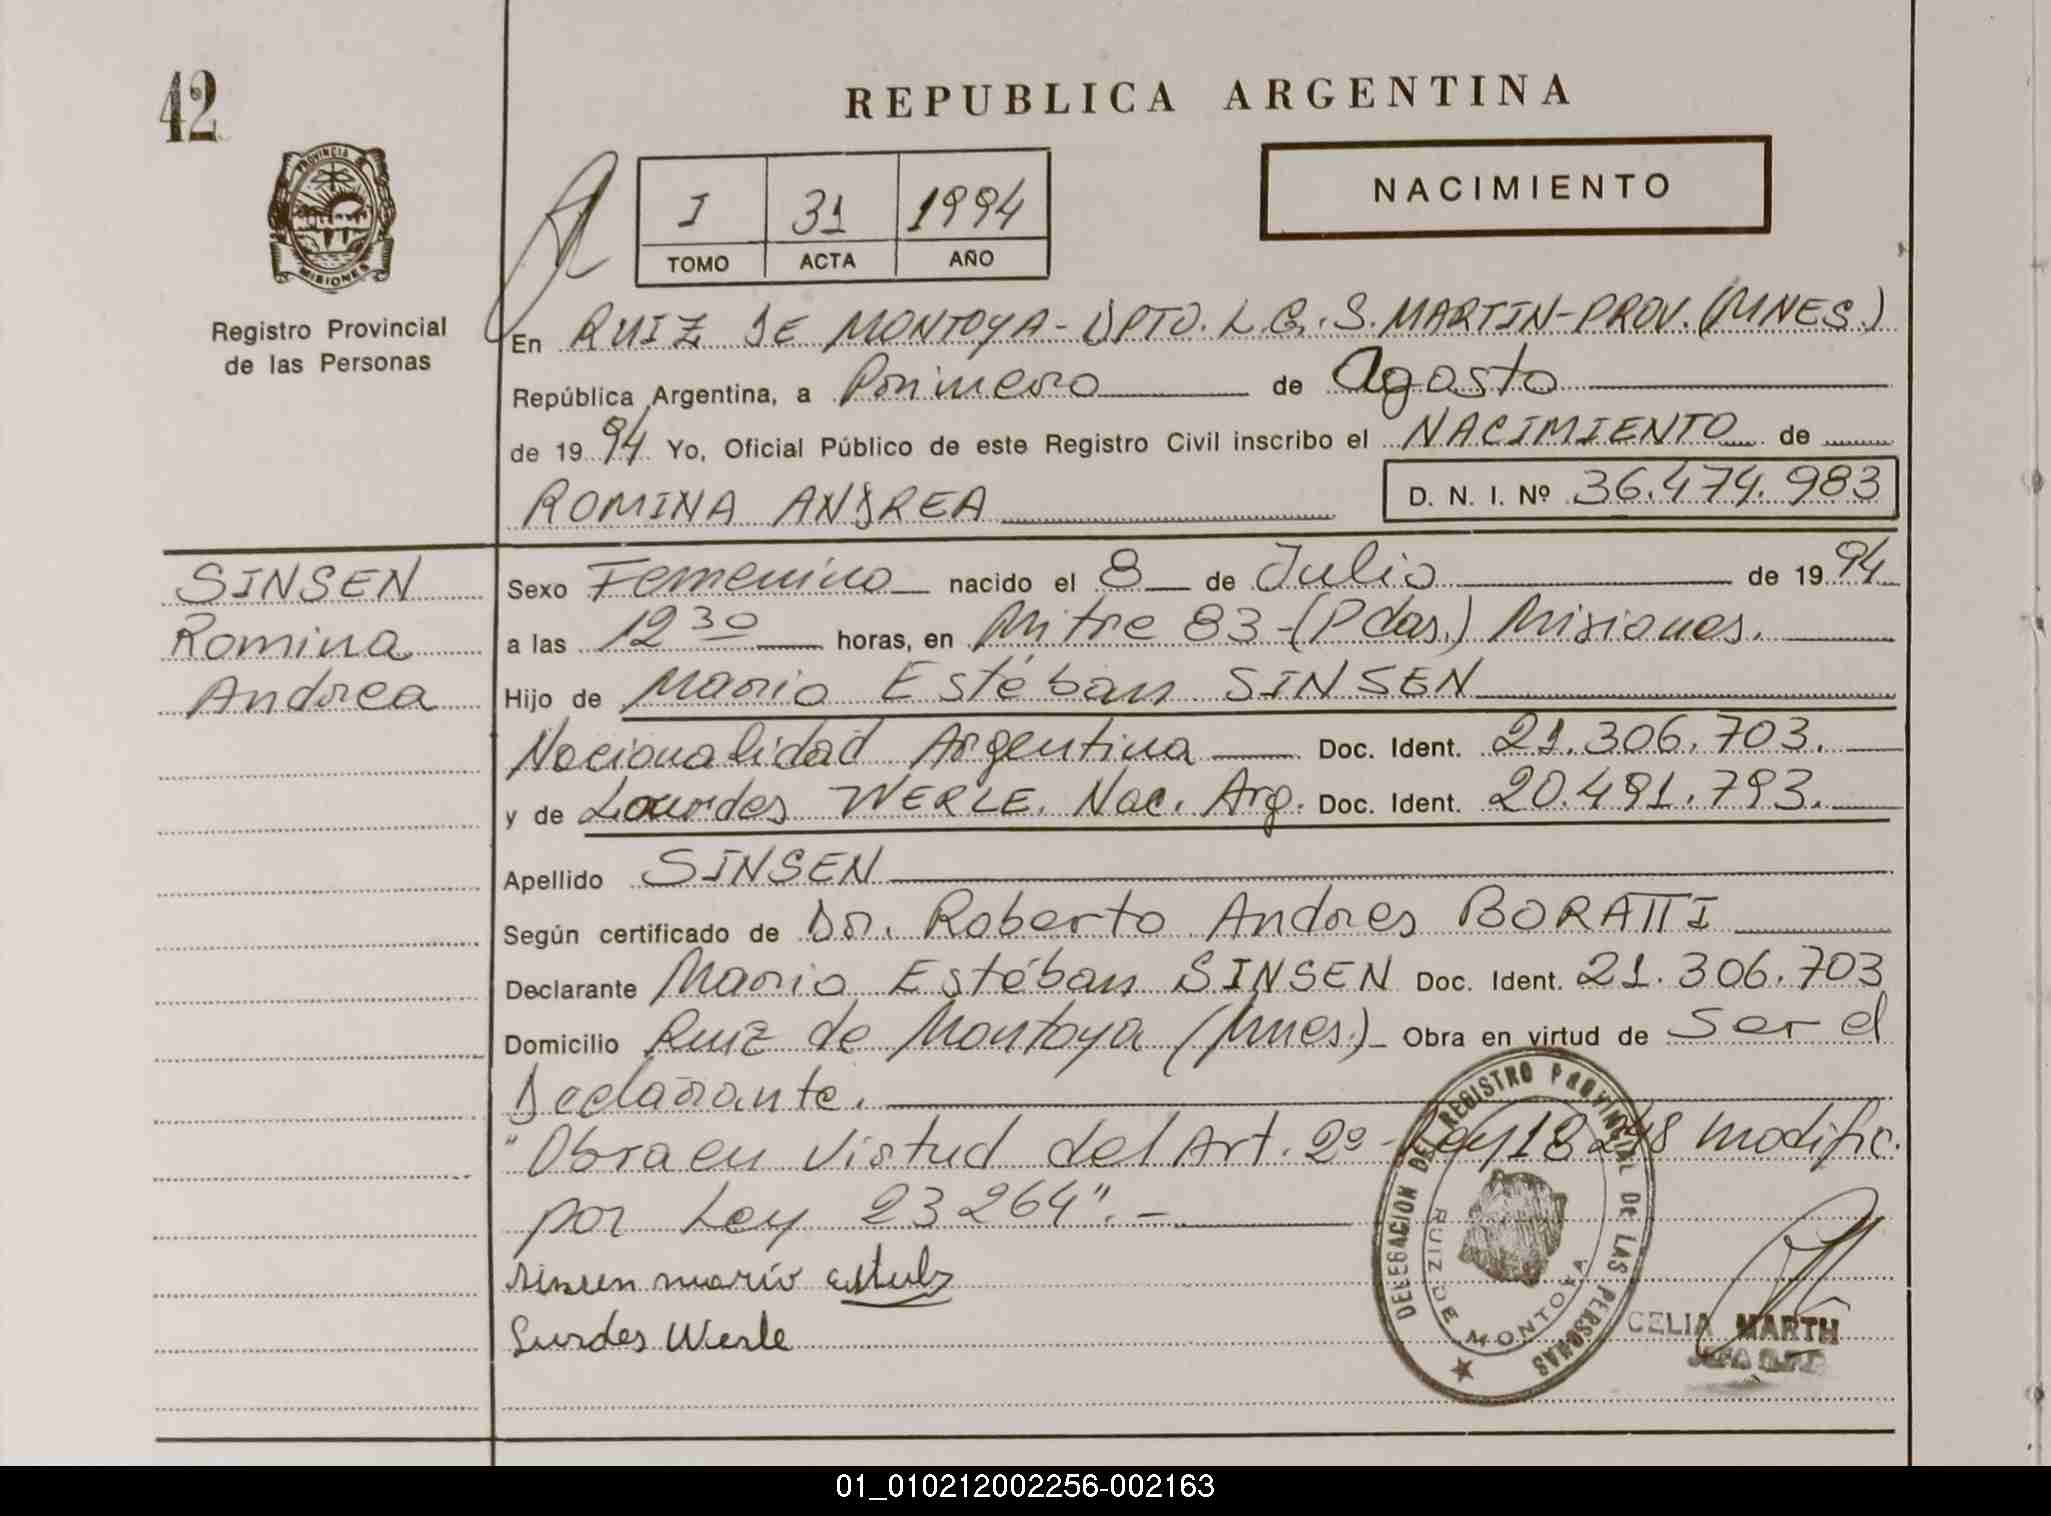 42
REPUBLICA ARGENTINA
PROVINCIA DE
MISIONES
Registro Provincial
de las Personas
I 31 1994
TOMO ACTA AÑO
NACIMIENTO
En RUIZ DE MONTOYA - DPTO. L.G.S. MARTIN - PROV. (MNES.)
República Argentina, a Primero de Agosto
de 1994 Yo, Oficial Público de este Registro Civil inscribo el NACIMIENTO de
ROMINA ANDREA D. N. I. Nº 36.474.983
SINSEN
Romina
Andrea
Sexo Femenino nacido el 8 de Julio de 1994
a las 12 30 horas, en Mitre 83 - (Pdas.) Misiones.
Hijo de Mario Estéban SINSEN
Nacionalidad Argentina Doc. Ident. 21.306.703.
y de Lourdes WERLE. Nac. Arg. Doc. Ident. 20.491.793.
Apellido SINSEN
Según certificado de Dr. Roberto Andres BORATTI
Declarante Mario Estéban SINSEN Doc. Ident. 21.306.703
Domicilio Ruiz de Montoya (Mnes.) Obra en virtud de Ser el
Declarante.
"Obra en Virtud del Art. 2º - Ley 18248 modific.
por Ley 23264". -
Sinsen mario
Lurdes Werle
DELEGACION DEL REGISTRO PROVINCIAL DE LAS PERSONAS
RUIZ DE MONTOYA
CELIA MARTH
JEFA
01_010212002256-002163